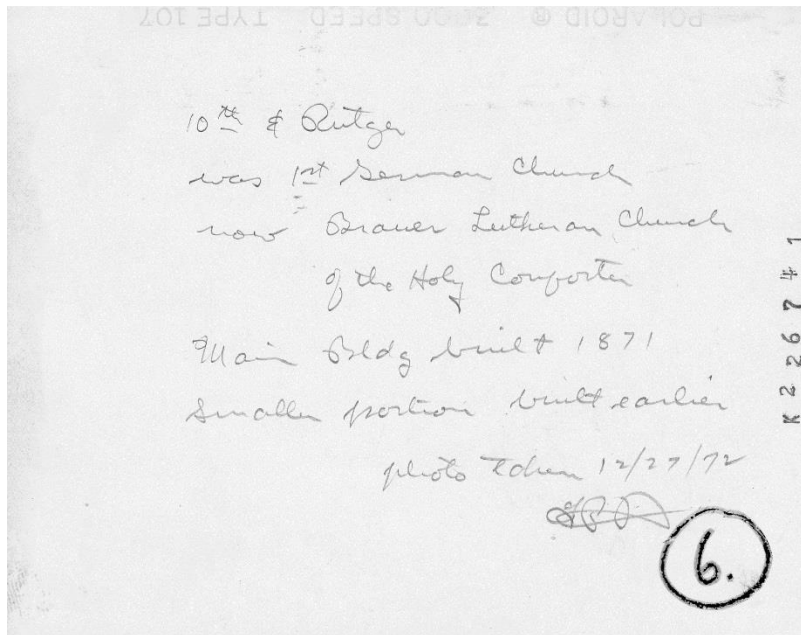 POLAROID ® 3000 SPEED TYPE 107
10th & Rutger
was 1st German Church
now Brauer Lutheran Church
of the Holy Comforter
Main Bldg built 1871
Smaller portion built earlier
photo taken 12/27/72
6.
K226741